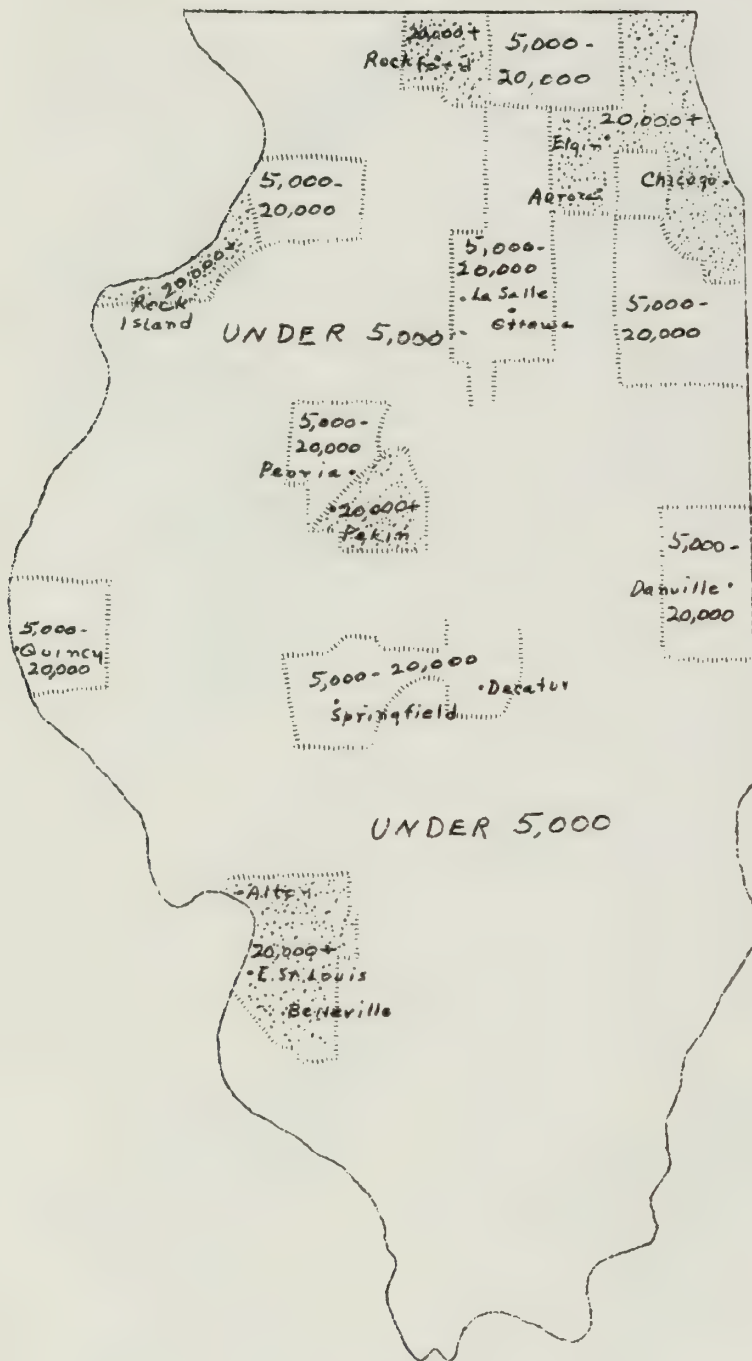 20,000+
Rockford
5,000-
20,000
20,000+
Elgin
Aurora
Chicago
5,000-
20,000
20,000+
Rock
Island
5,000-
20,000
La Salle
Ottawa
5,000-
20,000
UNDER 5,000
5,000-
20,000
Peoria
20,000+
Pekin
5,000-
Danville
20,000
5,000-
Quincy
20,000
5,000-20,000
Springfield
Decatur
UNDER 5,000
Alton
20,000+
E. St. Louis
Belleville